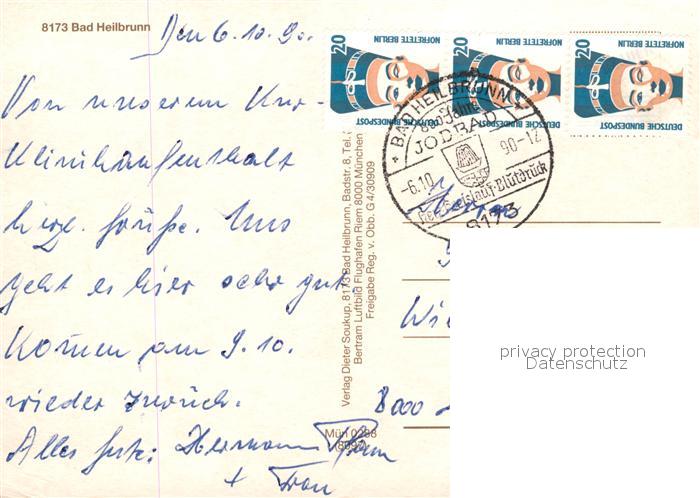 8173 Bad Heilbrunn
Den 6.10.90.
Von unserem Kur-
Klinikaufenthalt
herzl. Grüße. Uns
geht es hier sehr gut.
Komen am 9.10.
wieder zurück.
Alles Gute: Hermann
+ Frau
Verlag Dieter Soukup, 8173 Bad Heilbrunn, Badstr. 8, Tel.:
Bertram Luftbild Flughafen Riem 8000 München
Freigabe Reg. v. Obb. G 4/30909
Mün 0288
20
NOFRETETE BERLIN
DEUTSCHE BUNDESPOST
20
NOFRETETE BERLIN
DEUTSCHE BUNDESPOST
20
NOFRETETE BERLIN
DEUTSCHE BUNDESPOST
BAD HEILBRUNN
Jahre
JODBAD
-6.10
90-12
Herz-Kreislauf-Blutdruck
8173
8000
privacy protection
Datenschutz